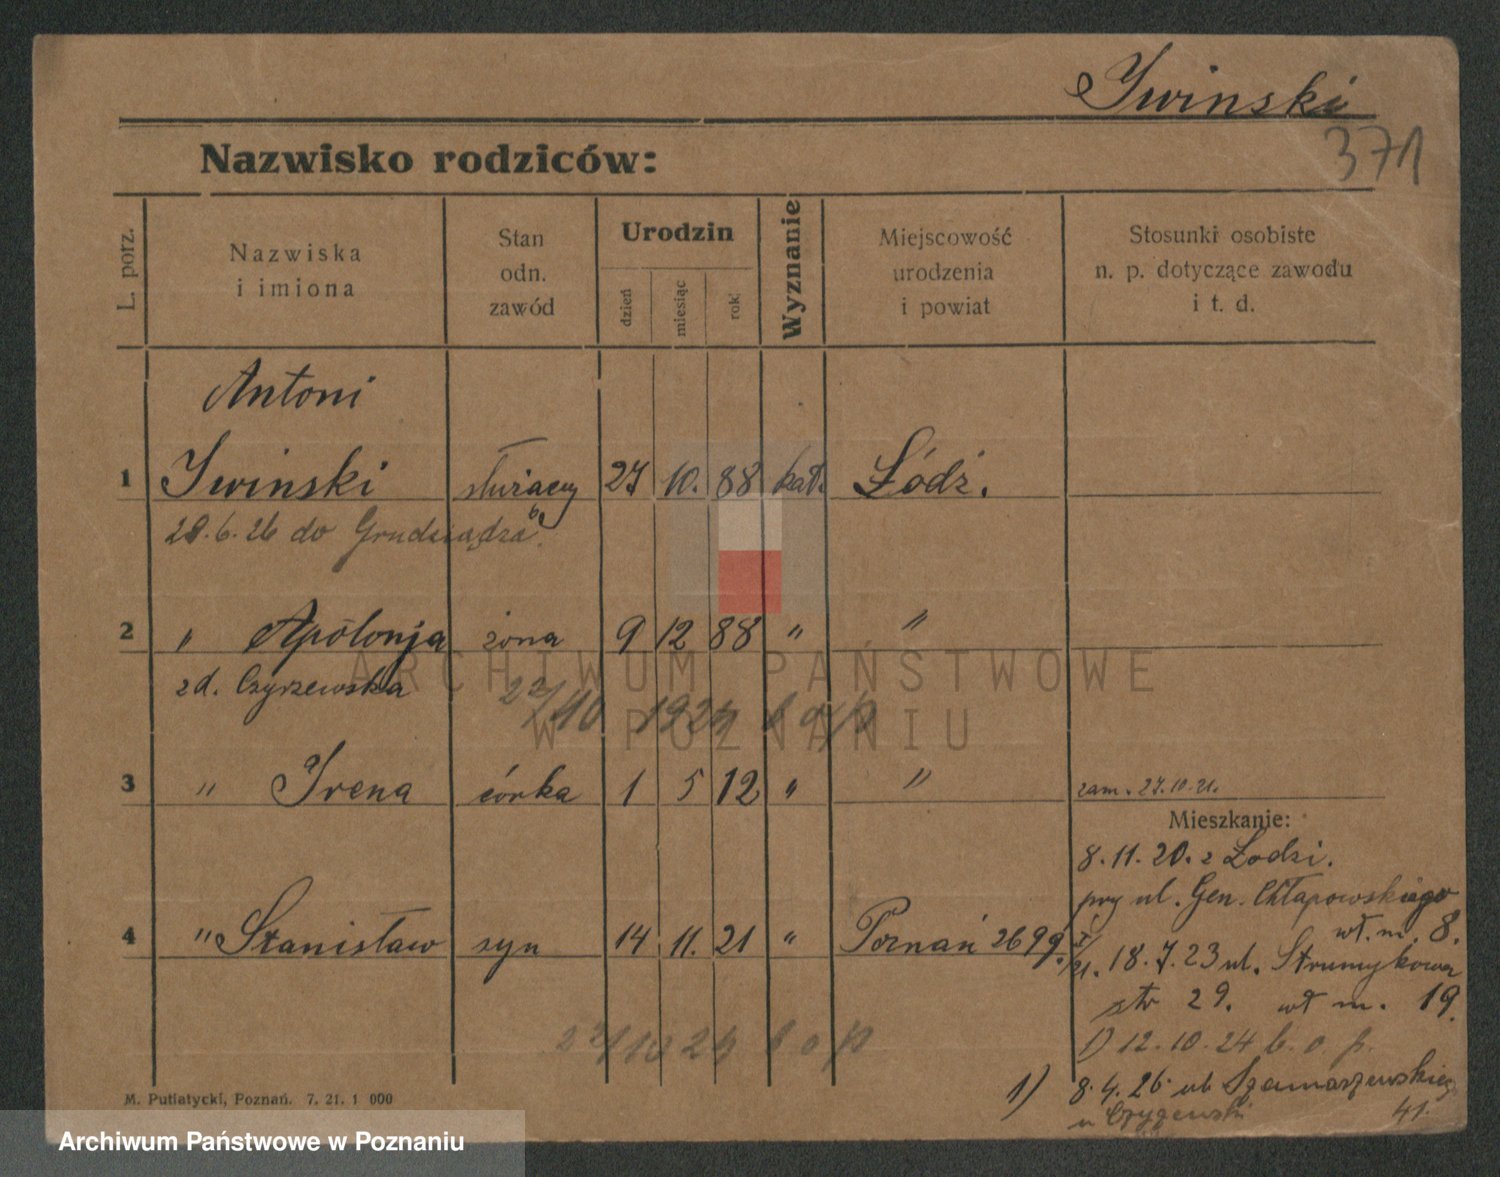 Iwinski
371
Nazwisko rodziców:
L. porz.
Nazwiska
i imiona
Stan
odn.
zawód
Urodzin
dzień
miesiąc
rok
Wyznanie
Miejscowość
urodzenia
i powiat
Stosunki osobiste
n. p. dotyczące zawodu
i t. d.
Antoni
1 Iwinski służący 27 10. 88 kat. Łódź.
28.6.26 do Grudziądza
2 " Apolonja żona 9 12 88 " "
zd. Czyrzewska
22/10 1924 b o/p
3 " Irena córka 1 5 12 " " zam. 27.10.21.
Mieszkanie:
8.11.20. z Łodzi.
przy ul. Gen. Chłapowskiego
wł. m. 8.
4 " Stanisław syn 14 11. 21 " Poznań 2699 I/21.
18.7.23 ul. Strumykowa
str 29. wł m. 19.
1) 12.10.24 b. o. p.
22/10 24 b o p
1) 8.4.26 ul Szamarzewskiego
41.
M. Putiatycki, Poznań. 7. 21. 1 000
ARCHIWUM PAŃSTWOWE
W POZNANIU
Archiwum Państwowe w Poznaniu